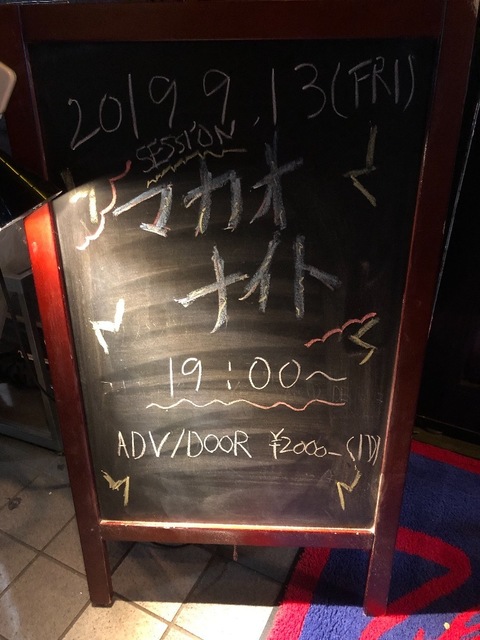 2019 9.13(FRI)
SESSION
マカオ
ナイト
19:00~
ADV/DOOR ¥2000-(1D)